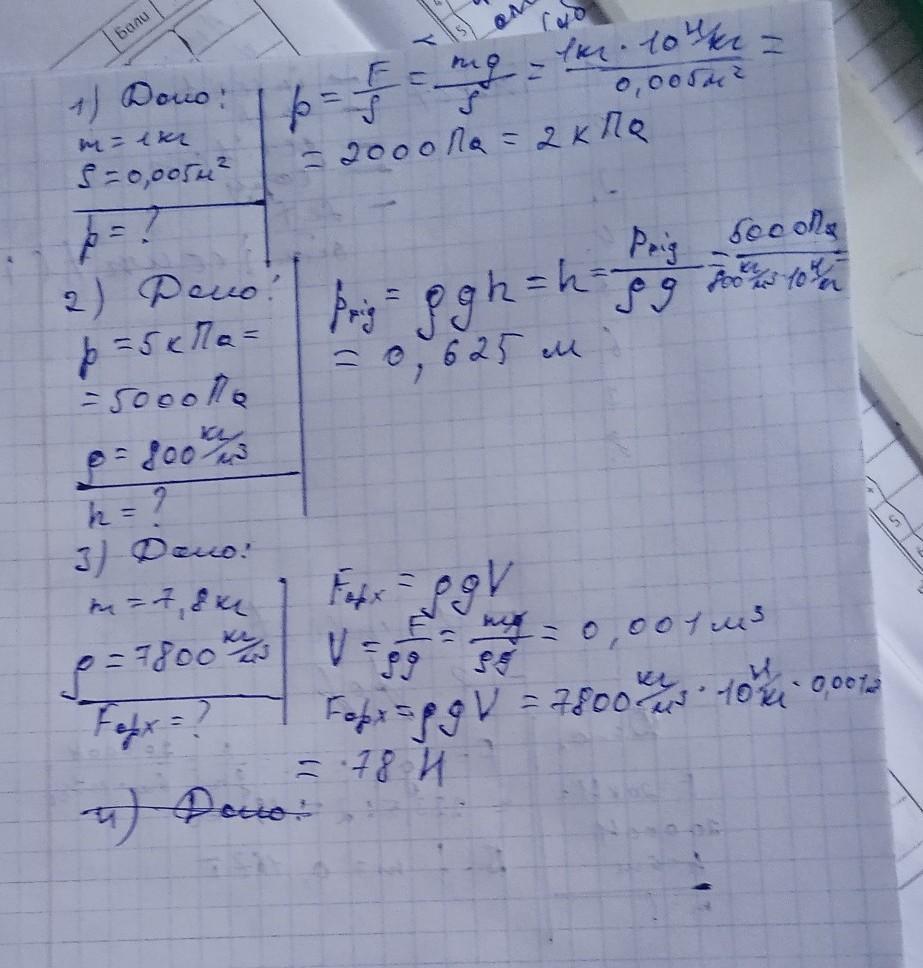 Бали
5
1) Дано:
m = 1кг
S = 0,005м²
p = ?
p = F/S = mg/S = 1кг · 10 Н/кг / 0,005м² =
= 2000Па = 2кПа
2) Дано:
p = 5кПа =
= 5000Па
ρ = 800 кг/м³
h = ?
Pрід = ρgh = h = Pрід/ρg = 5000Па / 800 кг/м³ · 10 Н/кг
= 0,625 м
3) Дано:
m = 7,8кг
ρ = 7800 кг/м³
Fарх = ?
Fарх = ρgV
V = F/ρg = mg/ρg = 0,001м³
Fарх = ρgV = 7800 кг/м³ · 10 Н/кг · 0,001
= 78 Н
4) Дано:
5